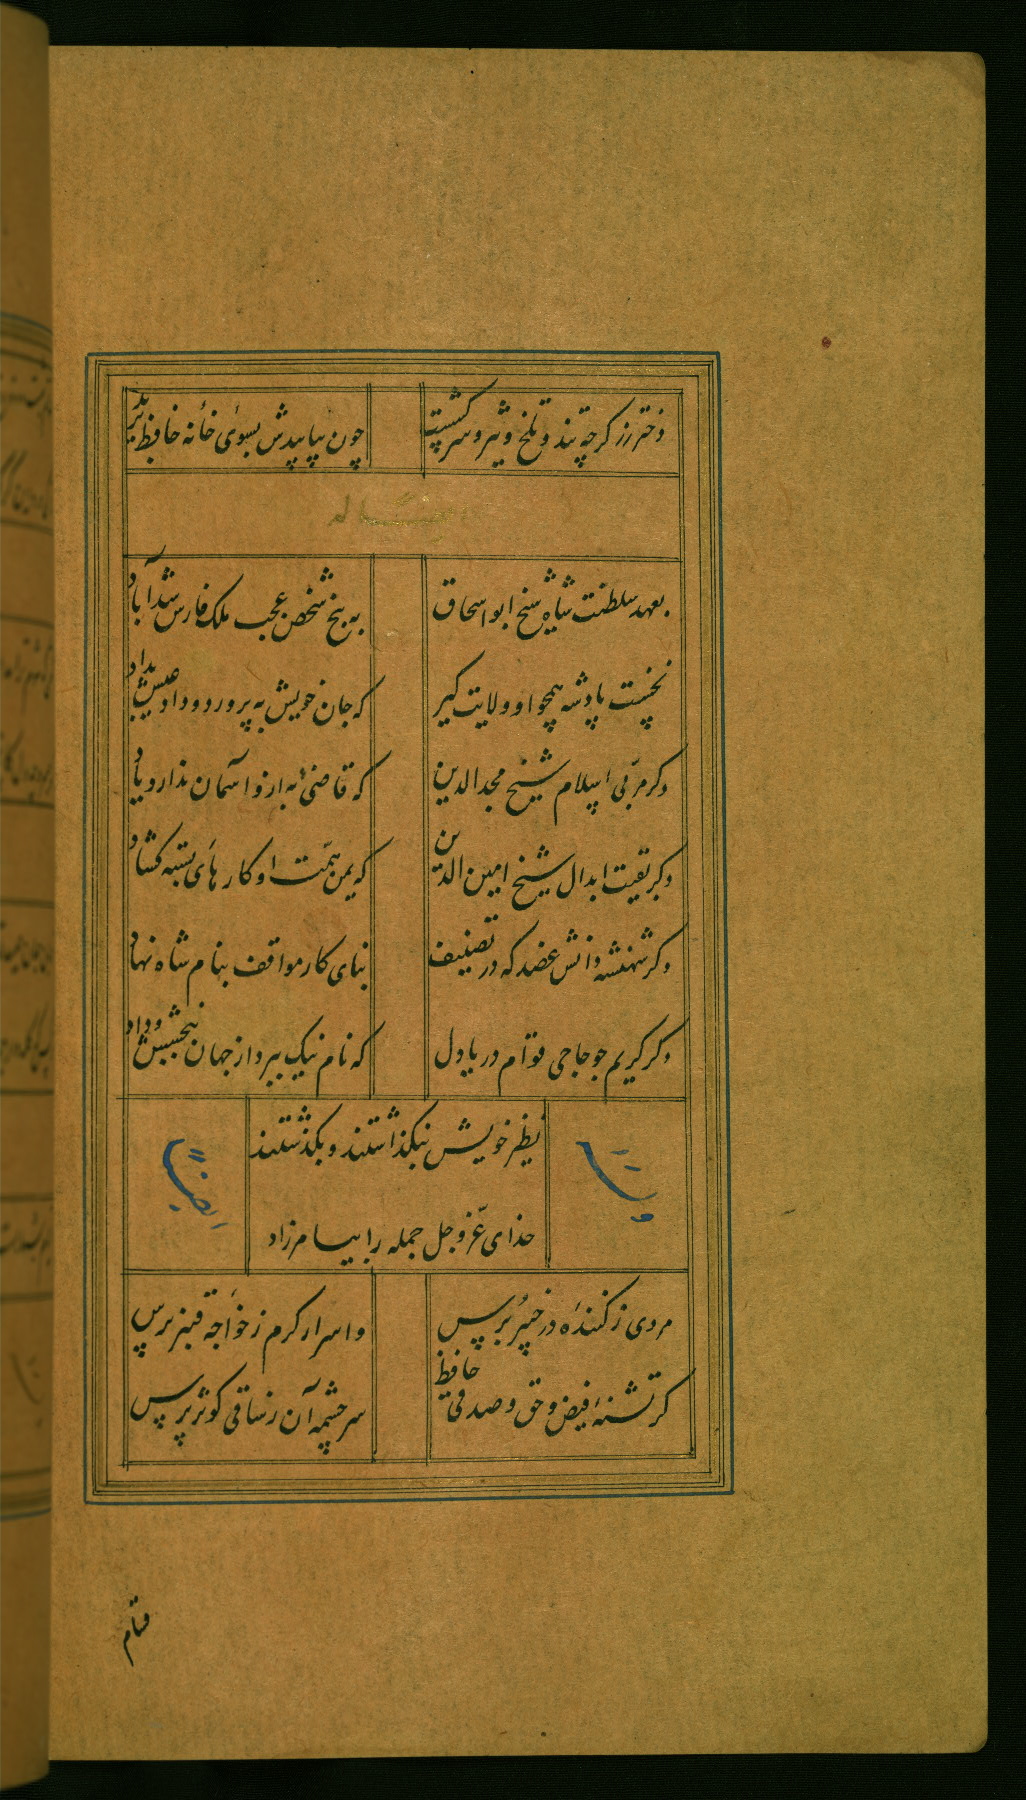 دختر رز گرچه تند و تلخ و شیر و سرکشست
چون بیابیدش بسوی خانه حافظ برید
ایضا له
بعهد سلطنت شاه شیخ ابو اسحاق
به پنج شخص عجب ملک فارس شد آباد
نخست پادشه همچو او ولایت گیر
که جان خویش به پرورد و داد عیش بداد
دکر مربّی اسلام شیخ مجد الدین
که قاضئ به ازو آسمان ندارد یاد
دکر بقیت ابدال شیخ امین الدین
که یمن همّت او کارهای بسته کشاد
دکر شهنشه دانش عضد که در تصنیف
بنای کار مواقف بنام شاه نهاد
دکر کریم چو حاجی قوّام دریا دل
که نام نیک ببرد از جهان ببخشش و داد
نظیر خویش نبکذاشتند و بکذشتند
خدای عزّ و جل جمله را بیامرزاد
ایضاً
مردی ز کنندهٔ در خیبر پرس
و اسرار کرم ز خواجه قنبر پرس
کر تشنهٔ فیض و حق و صدقی حافظ
سر چشمه آن ز ساقی کوثر پرس